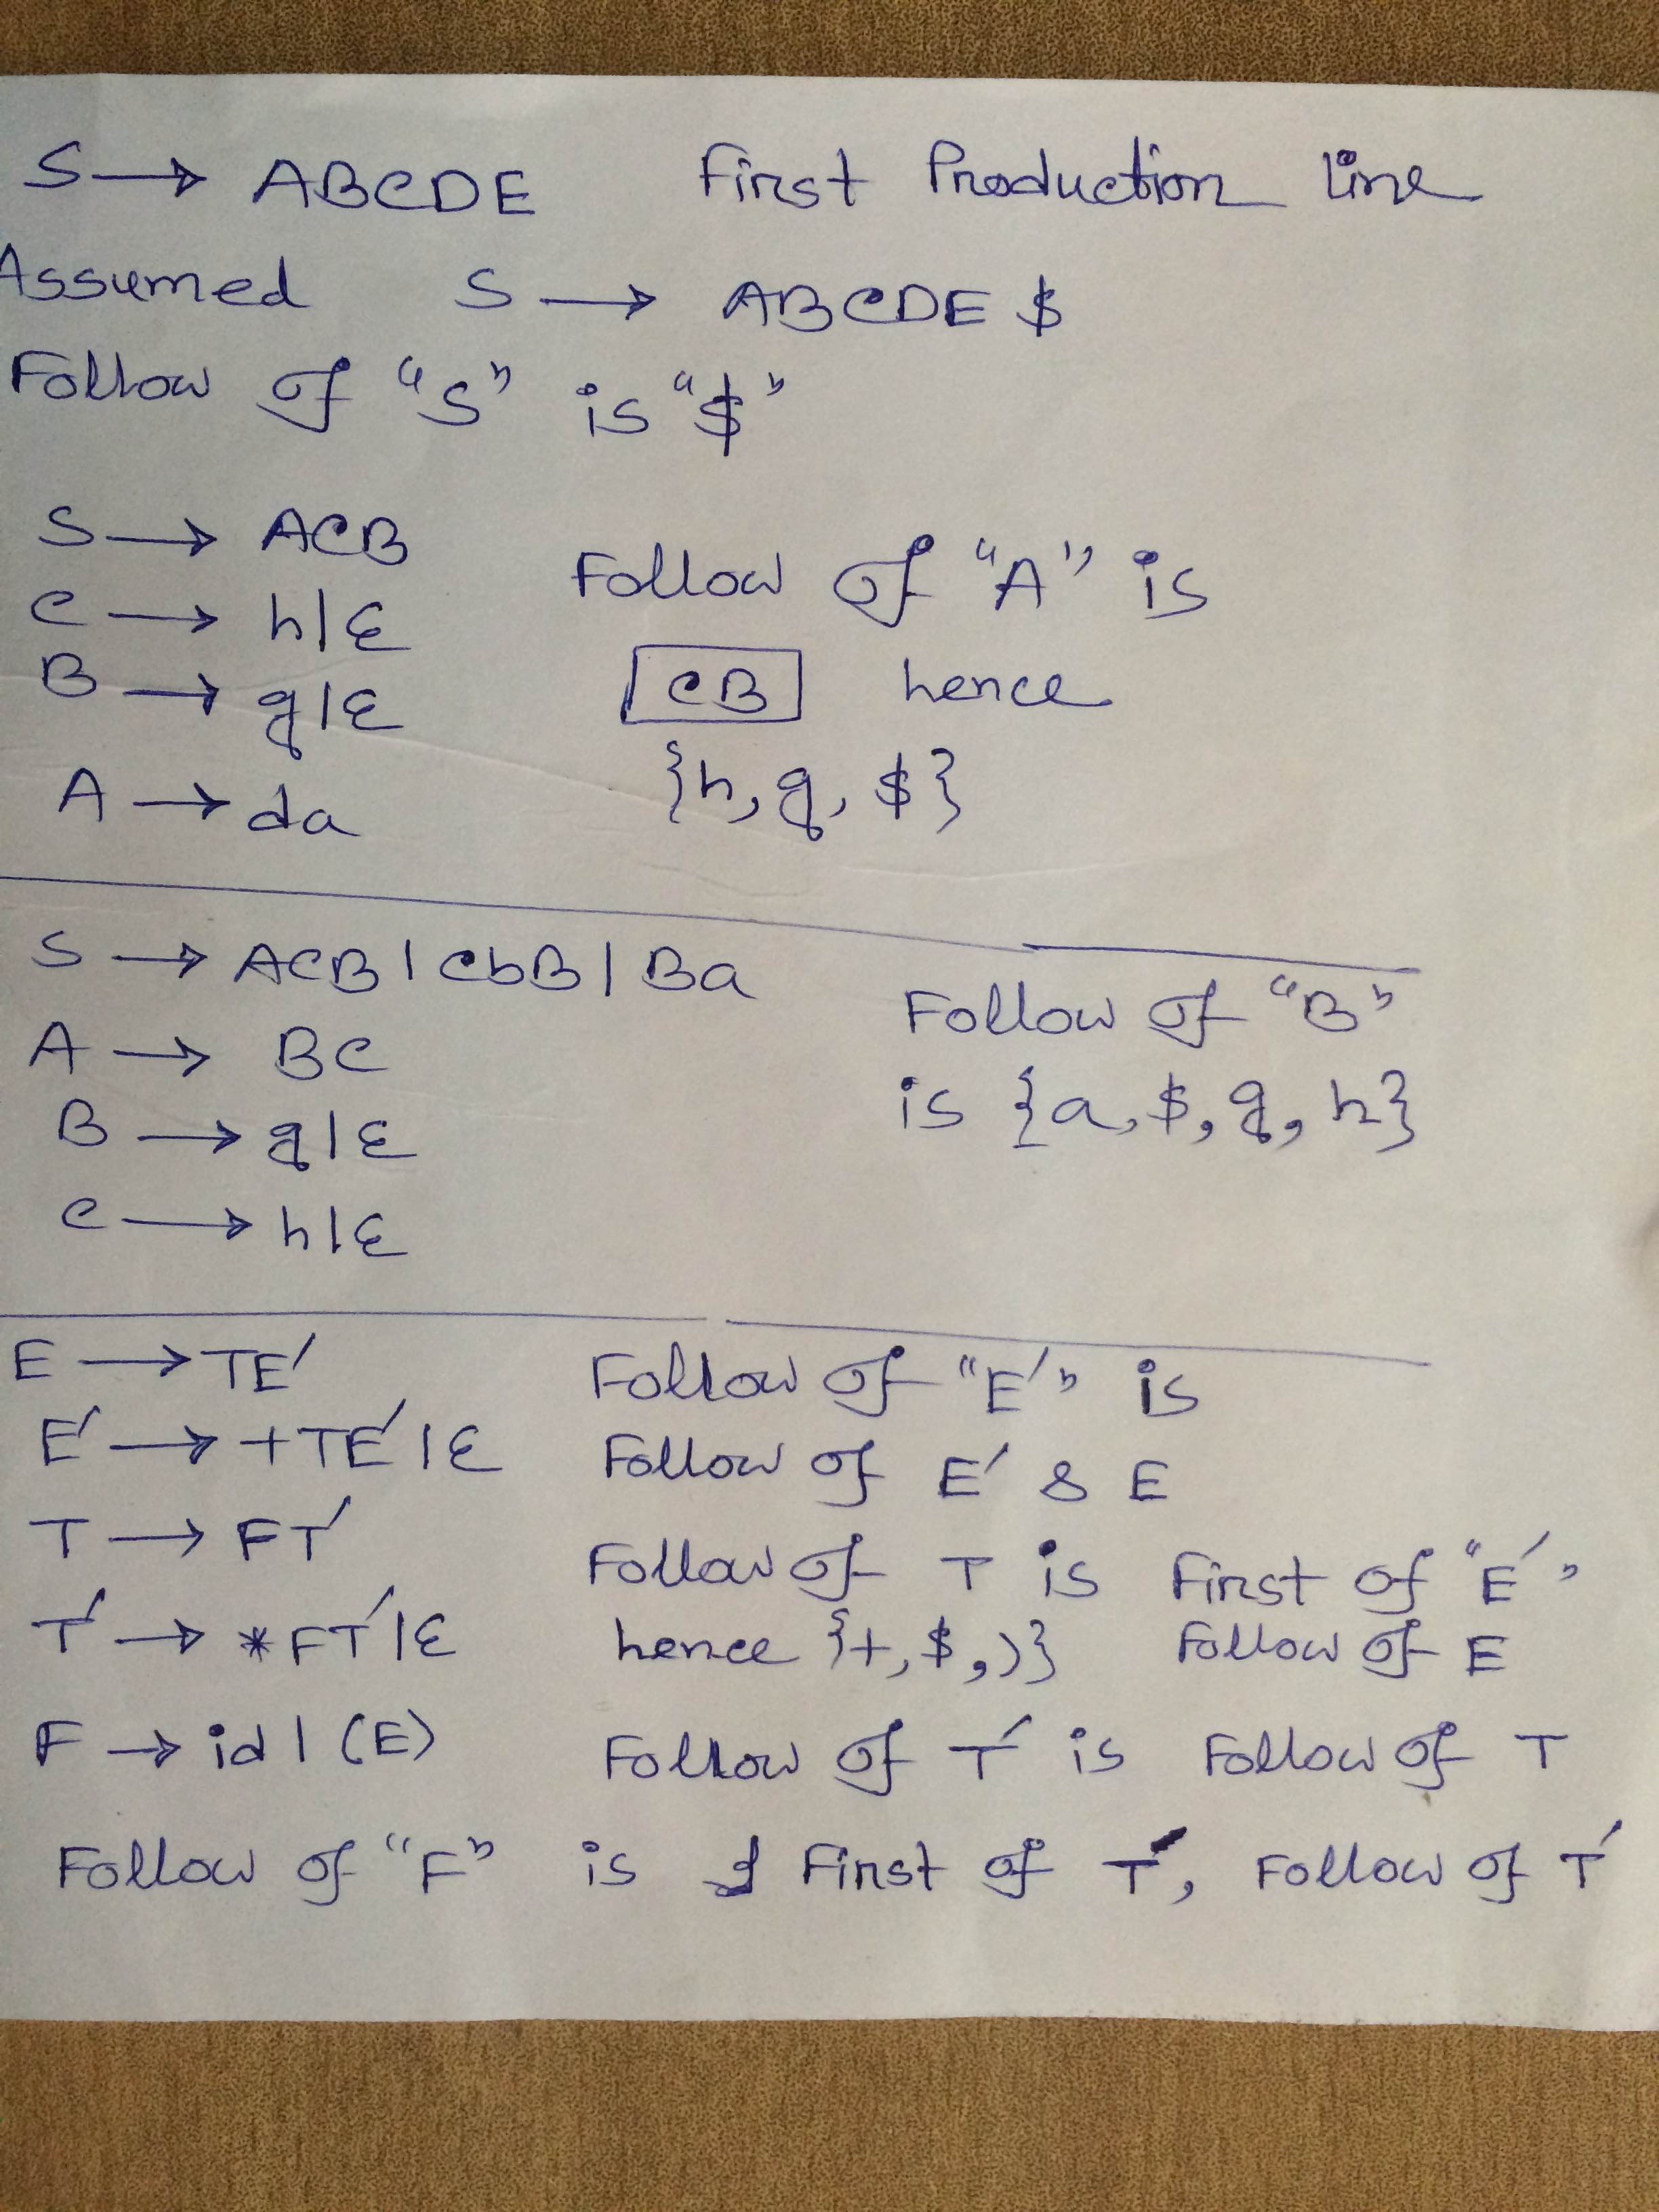 S → ABCDE First Production line
Assumed S → ABCDE $
Follow of "S" is "$"
S → ACB
C → h|ε
B → g|ε
A → da
Follow of "A" is
CB hence
{h, g, $}
S → ACB | CbB | Ba
A → BC
B → g|ε
C → h|ε
Follow of "B"
is {a, $, g, h}
E → TE′
E′ → +TE′|ε
T → FT′
T′ → *FT′|ε
F → id | (E)
Follow of "E′" is
Follow of E′ & E
Follow of T is First of "E′"
hence {+, $, )} Follow of E
Follow of T′ is Follow of T
Follow of "F" is First of T′, Follow of T′